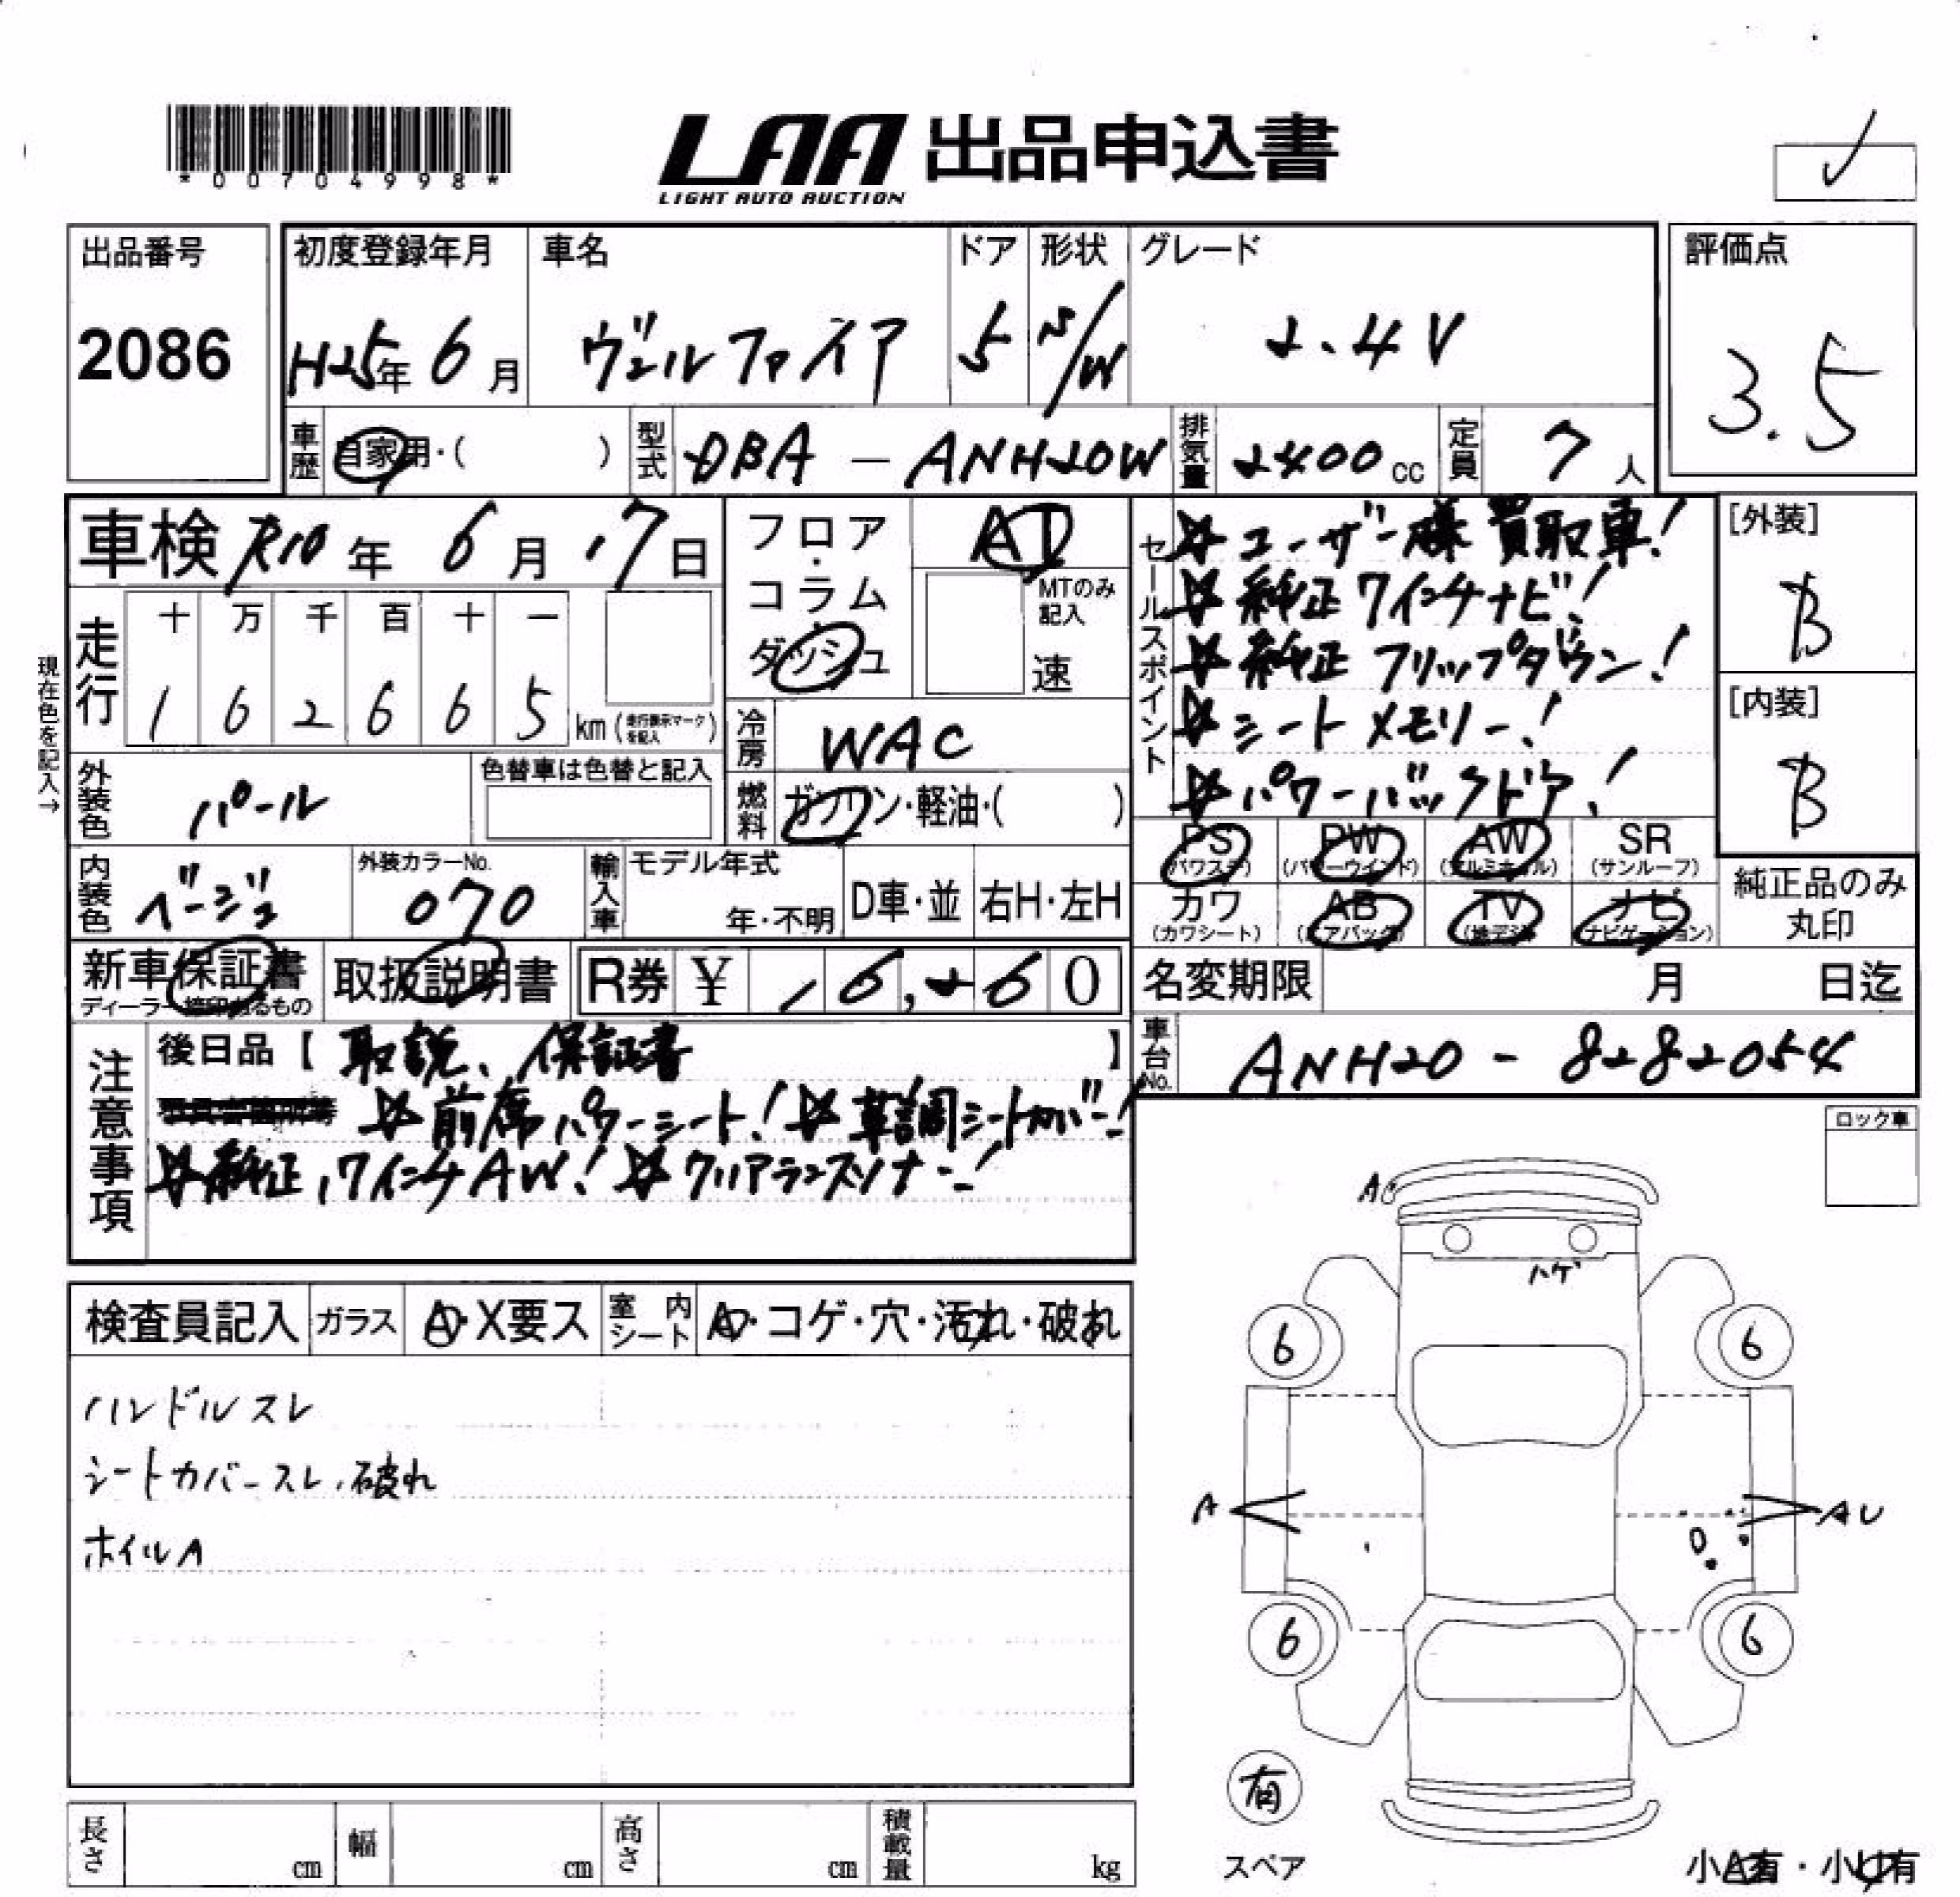 *00704998*
LAA 出品申込書
LIGHT AUTO AUCTION
✓
出品番号
2086
初度登録年月
H25年 6月
車名
ヴェルファイア
ドア
5
形状
S/W
グレード
2.4V
評価点
3.5
車歴 自家用・( )
型式 DBA - ANH20W
排気量 2400cc
定員 7人
車検 R10年 6月 17日
走行
十 万 千 百 十 一
1 6 2 6 6 5 km (走行表示マークを記入)
現在色を記入→
フロア・コラム・ダッシュ
AT
MTのみ記入
速
冷房 WAC
燃料 ガソリン・軽油・( )
外装色 パール
色替車は色替と記入
内装色 ベージュ
外装カラーNo.
070
輸入車 モデル年式
年・不明
D車・並
右H・左H
セールスポイント
☆ユーザー様買取車!
☆純正7インチナビ!
☆純正フリップダウン!
☆シートメモリー!
☆パワーバックドア!
[外装]
B
[内装]
B
PS PW AW SR
(パワステ) (パワーウインド) (アルミホイル) (サンルーフ)
カワ AB TV ナビ
(カワシート) (エアバッグ) (地デジ) (ナビゲーション)
純正品のみ丸印
新車保証書
ディーラー捺印あるもの
取扱説明書
R券 ¥ 16,260
名変期限 月 日迄
車台No. ANH20 - 8282054
注意事項
後日品【取説、保証書】
☆前席パワーシート! ☆革調シートカバー!
☆純正17インチAW! ☆クリアランスソナー!
ロック車
検査員記入
ガラス A・X要ス
室内シート A・コゲ・穴・汚れ・破れ
ハンドルスレ
シートカバースレ、破れ
ホイルA
A
ハゲ
6 6
A
AU
6 6
有
スペア
小A有・小U有
長さ cm
幅 cm
高さ cm
積載量 kg